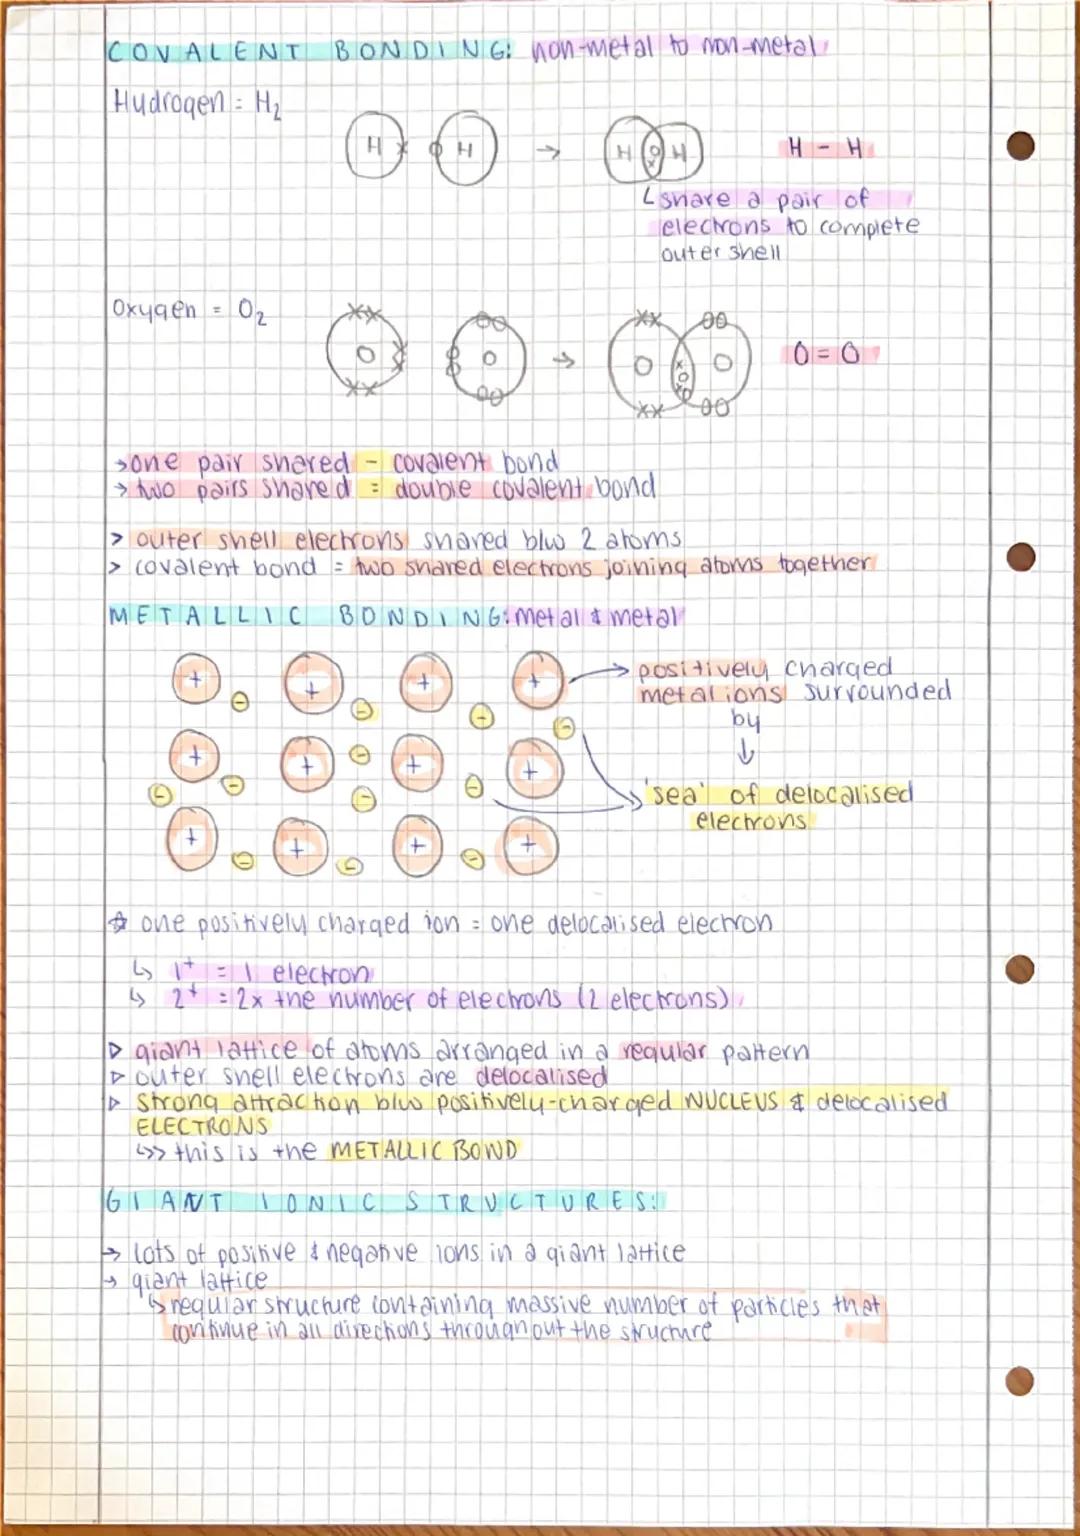 COVALENT BONDING: non-metal to non-metal
Hydrogen = H₂
H H → H H H - H
↳ share a pair of
electrons to complete
outer shell
Oxygen = O₂
O O → O O O = O
→ one pair shared - covalent bond
→ two pairs shared = double covalent bond
> outer shell electrons shared b/w 2 atoms
> covalent bond = two shared electrons joining atoms together
METALLIC BONDING: metal & metal
→ positively charged
metal ions surrounded
by
↓
'sea' of delocalised
electrons
☆ one positively charged ion = one delocalised electron
↳ 1⁺ = 1 electron
↳ 2⁺ = 2x the number of electrons (2 electrons)
▷ giant lattice of atoms arranged in a regular pattern
▷ outer shell electrons are delocalised
▷ strong attraction b/w positively-charged NUCLEUS & delocalised
ELECTRONS
↳>> this is the METALLIC BOND
GIANT IONIC STRUCTURES:
→ lots of positive & negative ions in a giant lattice
→ giant lattice
↳ regular structure containing massive number of particles that
continue in all directions throughout the structure